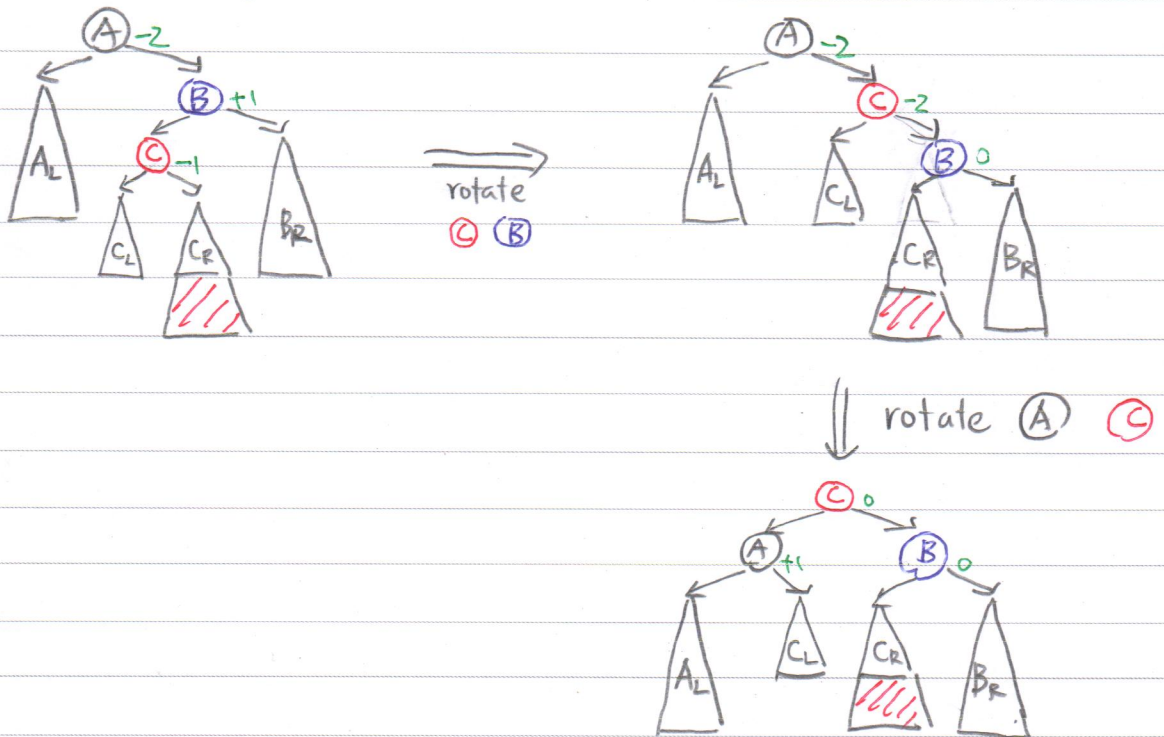 A -2
B +1
C -1
A_L
C_L C_R B_R
rotate
C B
A -2
C -2
B 0
A_L C_L
C_R B_R
rotate A C
C 0
A +1 B 0
A_L C_L C_R B_R